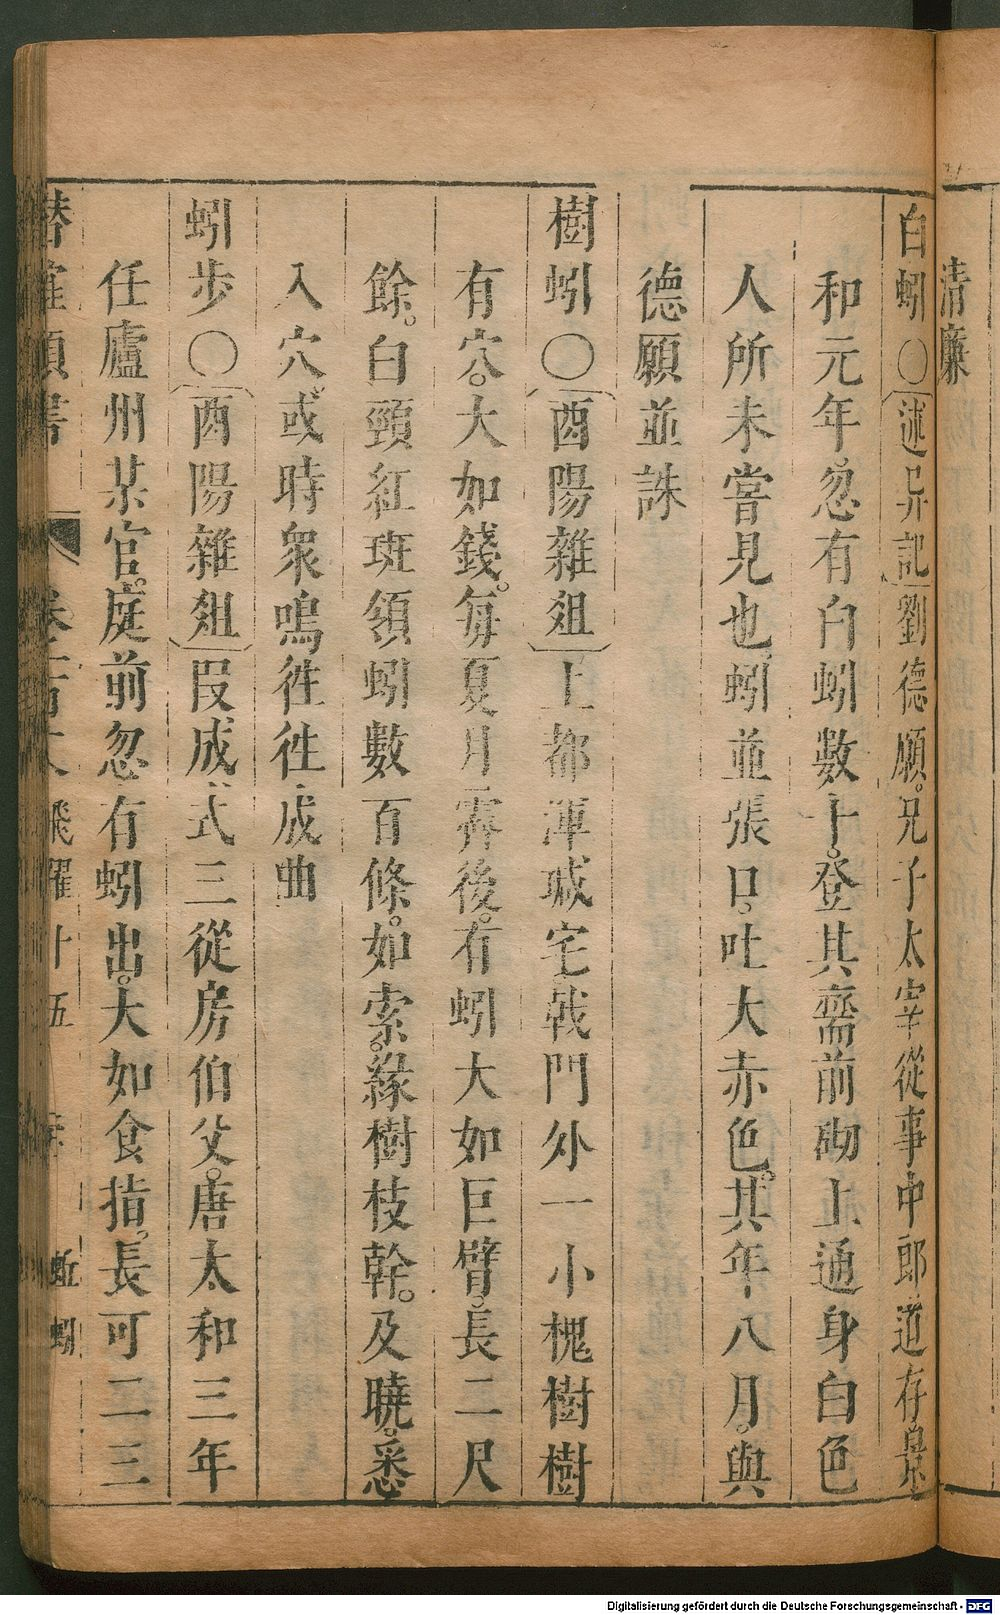 清廉
白蚓○述异記劉德願兄子太宰從事中郎道存景
和元年忽有白蚓數十登其齋前砌上通身白色
人所未嘗見也蚓並張口吐大赤色其年八月與
德願並誅
樹蚓○酉陽雜俎上都渾瑊宅戟門外一小槐樹樹
有穴大如錢每夏月霽後有蚓大如巨臂長二尺
餘白頸紅斑領蚓數百條如索緣樹枝幹及曉悉
入穴或時衆鳴徃徃成曲
蚓步○酉陽雜俎叚成式三從房伯父唐太和三年
任廬州某官庭前忽有蚓出大如食指長可二三
飛躍十五 蚯蚓
Digitalisierung gefördert durch die Deutsche Forschungsgemeinschaft - DFG